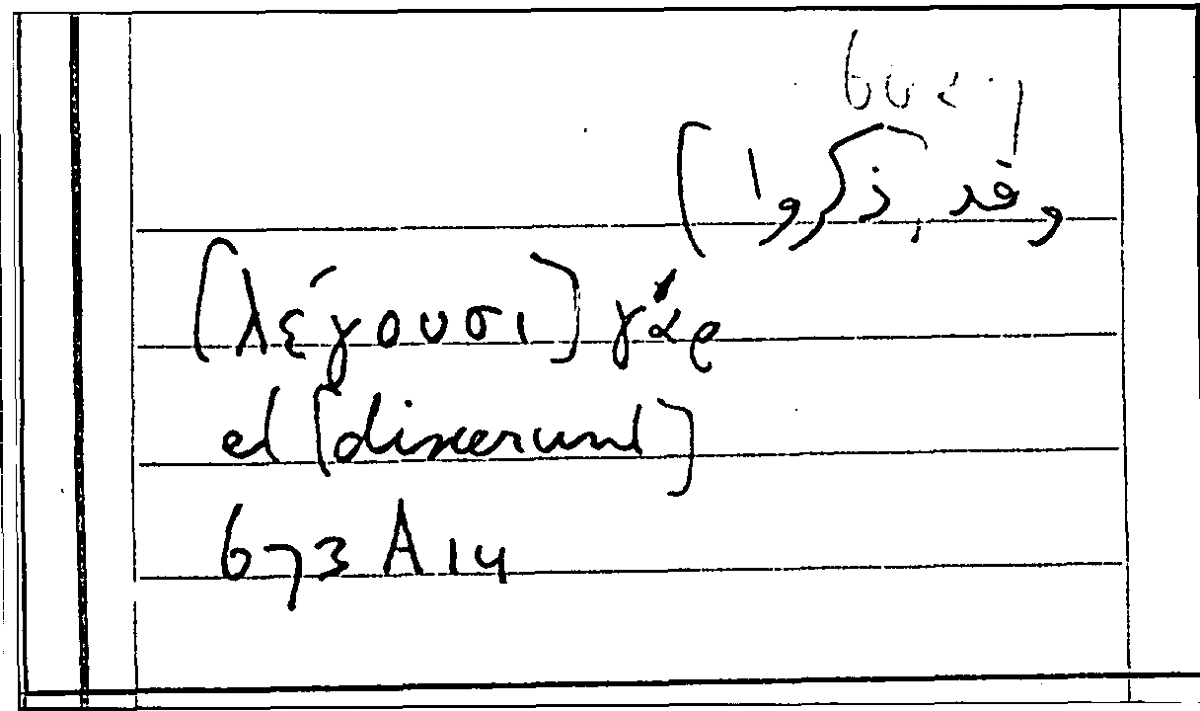 وقد [ذكروا]
[λέγουσι] γάρ
et [dixerunt]
673 A 14